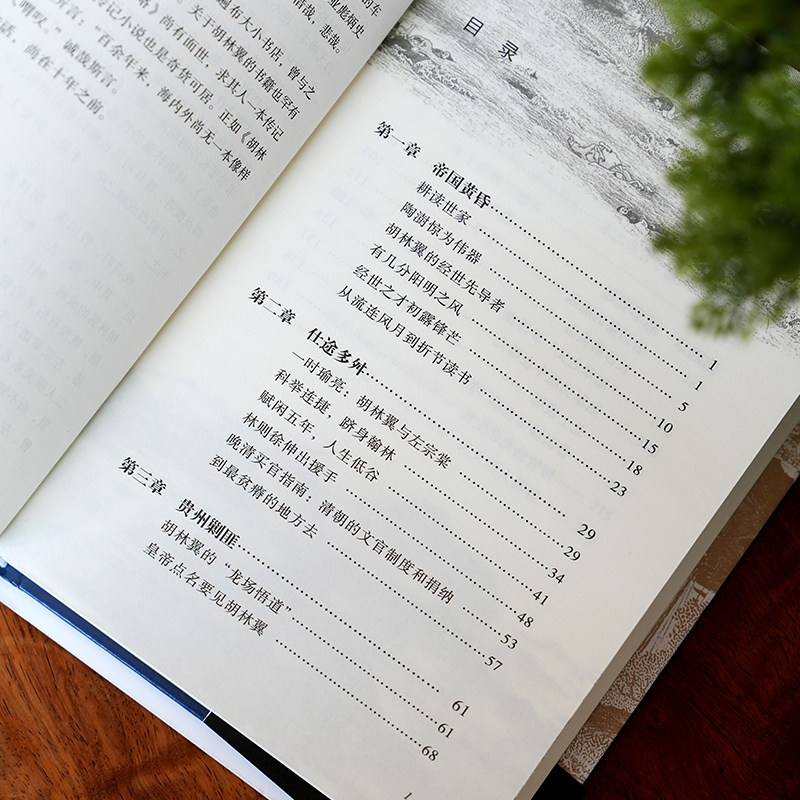 的车
业彪炳史
惜哉，悲哉。
遍布大小书店，曾与之
关于胡林翼的书籍也罕有
略》尚有面世，求其人一本传记
传记小说也是奇货可居。正如《胡林
言：“百余年来，海内外尚无一本像样
诚哉斯言。
话，尚在十年之前。
目录
第一章 帝国黄昏 1
耕读世家 1
陶澍惊为伟器 5
胡林翼的经世先导者 10
有几分阳明之风 15
经世之才初露锋芒 18
从流连风月到折节读书 23
第二章 仕途多舛 29
一时瑜亮：胡林翼与左宗棠 29
科举连捷，跻身翰林 34
赋闲五年，人生低谷 41
林则徐伸出援手 48
晚清买官指南：清朝的文官制度和捐纳 53
到最贫瘠的地方去 57
第三章 贵州剿匪 61
胡林翼的“龙场悟道” 61
皇帝点名要见胡林翼 68
1